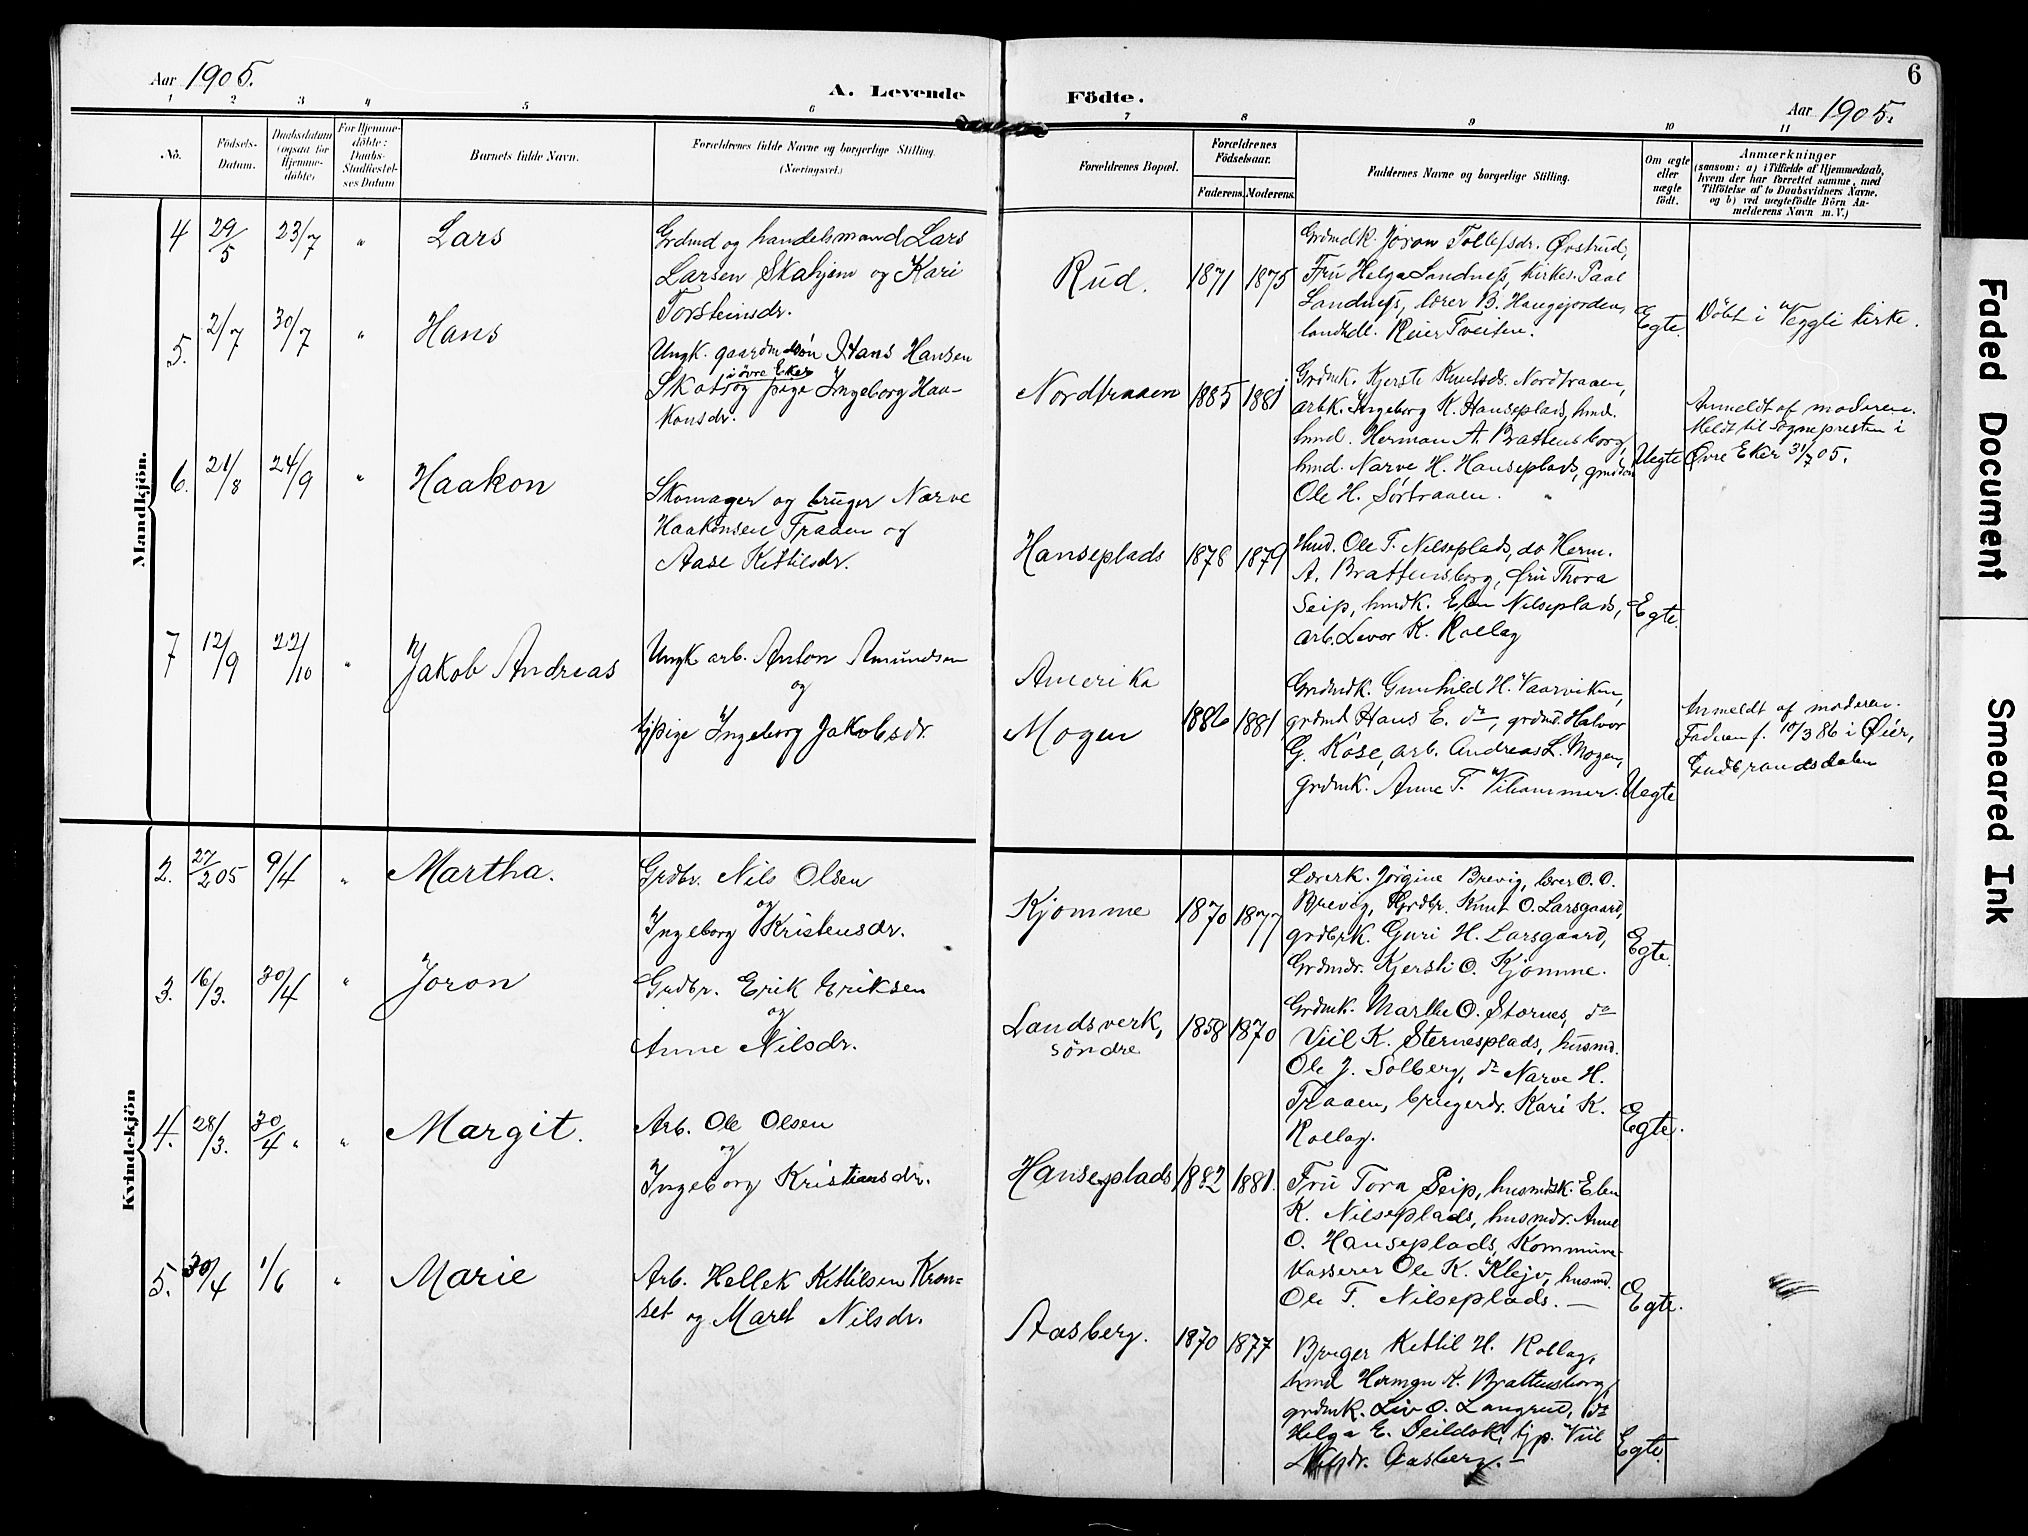 Aar 1905.
A. Levende
Födte.
6
Aar 1905.
1 2 3 4 5 6 7 8 9 10 11
No.
Födsels-
Datum.
Daabsdatum
(ogsaa for
Hjemme-
döbte)
For Hjemme-
döbte:
Daabs-
Stadfæstel-
ses Datum
Barnets fulde Navn.
Forældrenes fulde Navne og borgerlige Stilling.
(Næringsvei.)
Forældrenes Bopæl.
Forældrenes
Födselsaar.
Faderens. Moderens.
Faddernes Navne og borgerlige Stilling.
Om ægte
eller
uægte
födt.
Anmærkninger
(saasom: a) i Tilfælde af Hjemmedaab,
hvem der har forrettet samme, med
Tilföielse af to Daabsvidners Navne.
og b) ved uægtefödte Börn An-
melderens Navn m. V.)
Mandkjön.
4 29/5 23/7 " Lars
Grdmd og handelsmand Lars
Larsen Skahjem og Kari
Torsteinsdr.
Rud. 1871 1875
Grdmdk. Joron Tollefsdr. Øvstrud,
Fru Helga Landness, kirkes. Paal
Landness, lærer B. Haugejorden,
landhdl. Reier Tveiten.
Egte.
Döbt i Veggli kirke.
5. 2/7 30/7 " Hans
Ungk. gaardmdsön Hans Hansen
i övre Eker
Skots og pige Ingeborg Haa-
konsdr.
Nordtraaen 1885 1881
Grdmk. Kjersti Knutsdr. Nordtraaen,
arbk. Ingeborg K. Hanseplads, hmd.
hmd. Herman A. Brattensborg,
hmd. Narve H. Hanseplads, gmdsön
Ole H. Sørtraaen.
Uegte
Anmeldt af moderen.
Meldt til sognepresten i
Øvre Eker 31/7 05.
6. 21/8 24/9 " Haakon
Skomager og bruger Narve
Haakonsen Traaen og
Aase Kittilsdr.
Hanseplads 1878 1879
Hmd. Ole T. Nilseplads, do Herm.
A. Brattensborg, fru Thora
Seip, hmdk. Elen Nilseplads,
arb. Levor K. Rollag
Egte.
7 12/9 22/10 " Jakob Andreas
Ungk arb. Anton Amundsen
og
tjpige Ingeborg Jakobsdr.
Amerika
Mogen 1886 1881
Grdmdk. Gunhild H. Vaarviken,
grdmd Hans E. do, grdmd. Halvor
G. Kose, arb. Andreas L. Mogen,
grdmk. Anne T. Vihammer.
Uegte
Anmeldt af moderen.
Faderen f. 10/3 86 i Øier,
Gudbrandsdalen
Kvindekjön
2. 27/2 05 9/4 " Martha.
Grdbr. Nils Olsen
og
Ingeborg Kristensdr.
Kjomme 1870 1877
Lærerk. Jörgine Brevig, lærer O. O.
Brevig, Grdbr. Knut O. Larsgaard,
grdbrk. Guri H. Larsgaard,
Grdmdr. Kjersti O. Kjomme.
Egte.
3. 16/3. 30/4 " Joron
Grdbr. Erik Eriksen
og
Anne Nilsdr.
Landsverk,
söndre 1858 1870
Grdmk. Marthe O. Stornes, do
Viil K. Sternesplads, husmd.
Ole J. Solberg, do Narve H.
Traaen, brugerdr. Kari K.
Rollag.
Egte.
4. 28/3. 30/4 " " Margit.
Arb. Ole Olsen
og
Ingeborg Kristiansdr.
Hanseplads 1882 1881.
Fru Tora Seip, husmdsk. Elen
K. Nilseplads, husmdr. Anne
O. Hanseplads, Kommune-
kasserer Ole K. Klejv, husmd.
Ole T. Nilseplads. —
Egte.
5. 30/4 1/6 " Marie
Arb. Hellek Kittilsen Kron=
set og Maret Nilsdr.
Aasberg. 1870 1877
Bruger Kittil H. Rollag,
hmd Herman A. Brattensborg,
grdmk. Liv O. Langrud, do
Helga E. Deildok, tjp. Viil
Nilsdr. Aasberg. —
Egte.
Faded Document
Smeared Ink